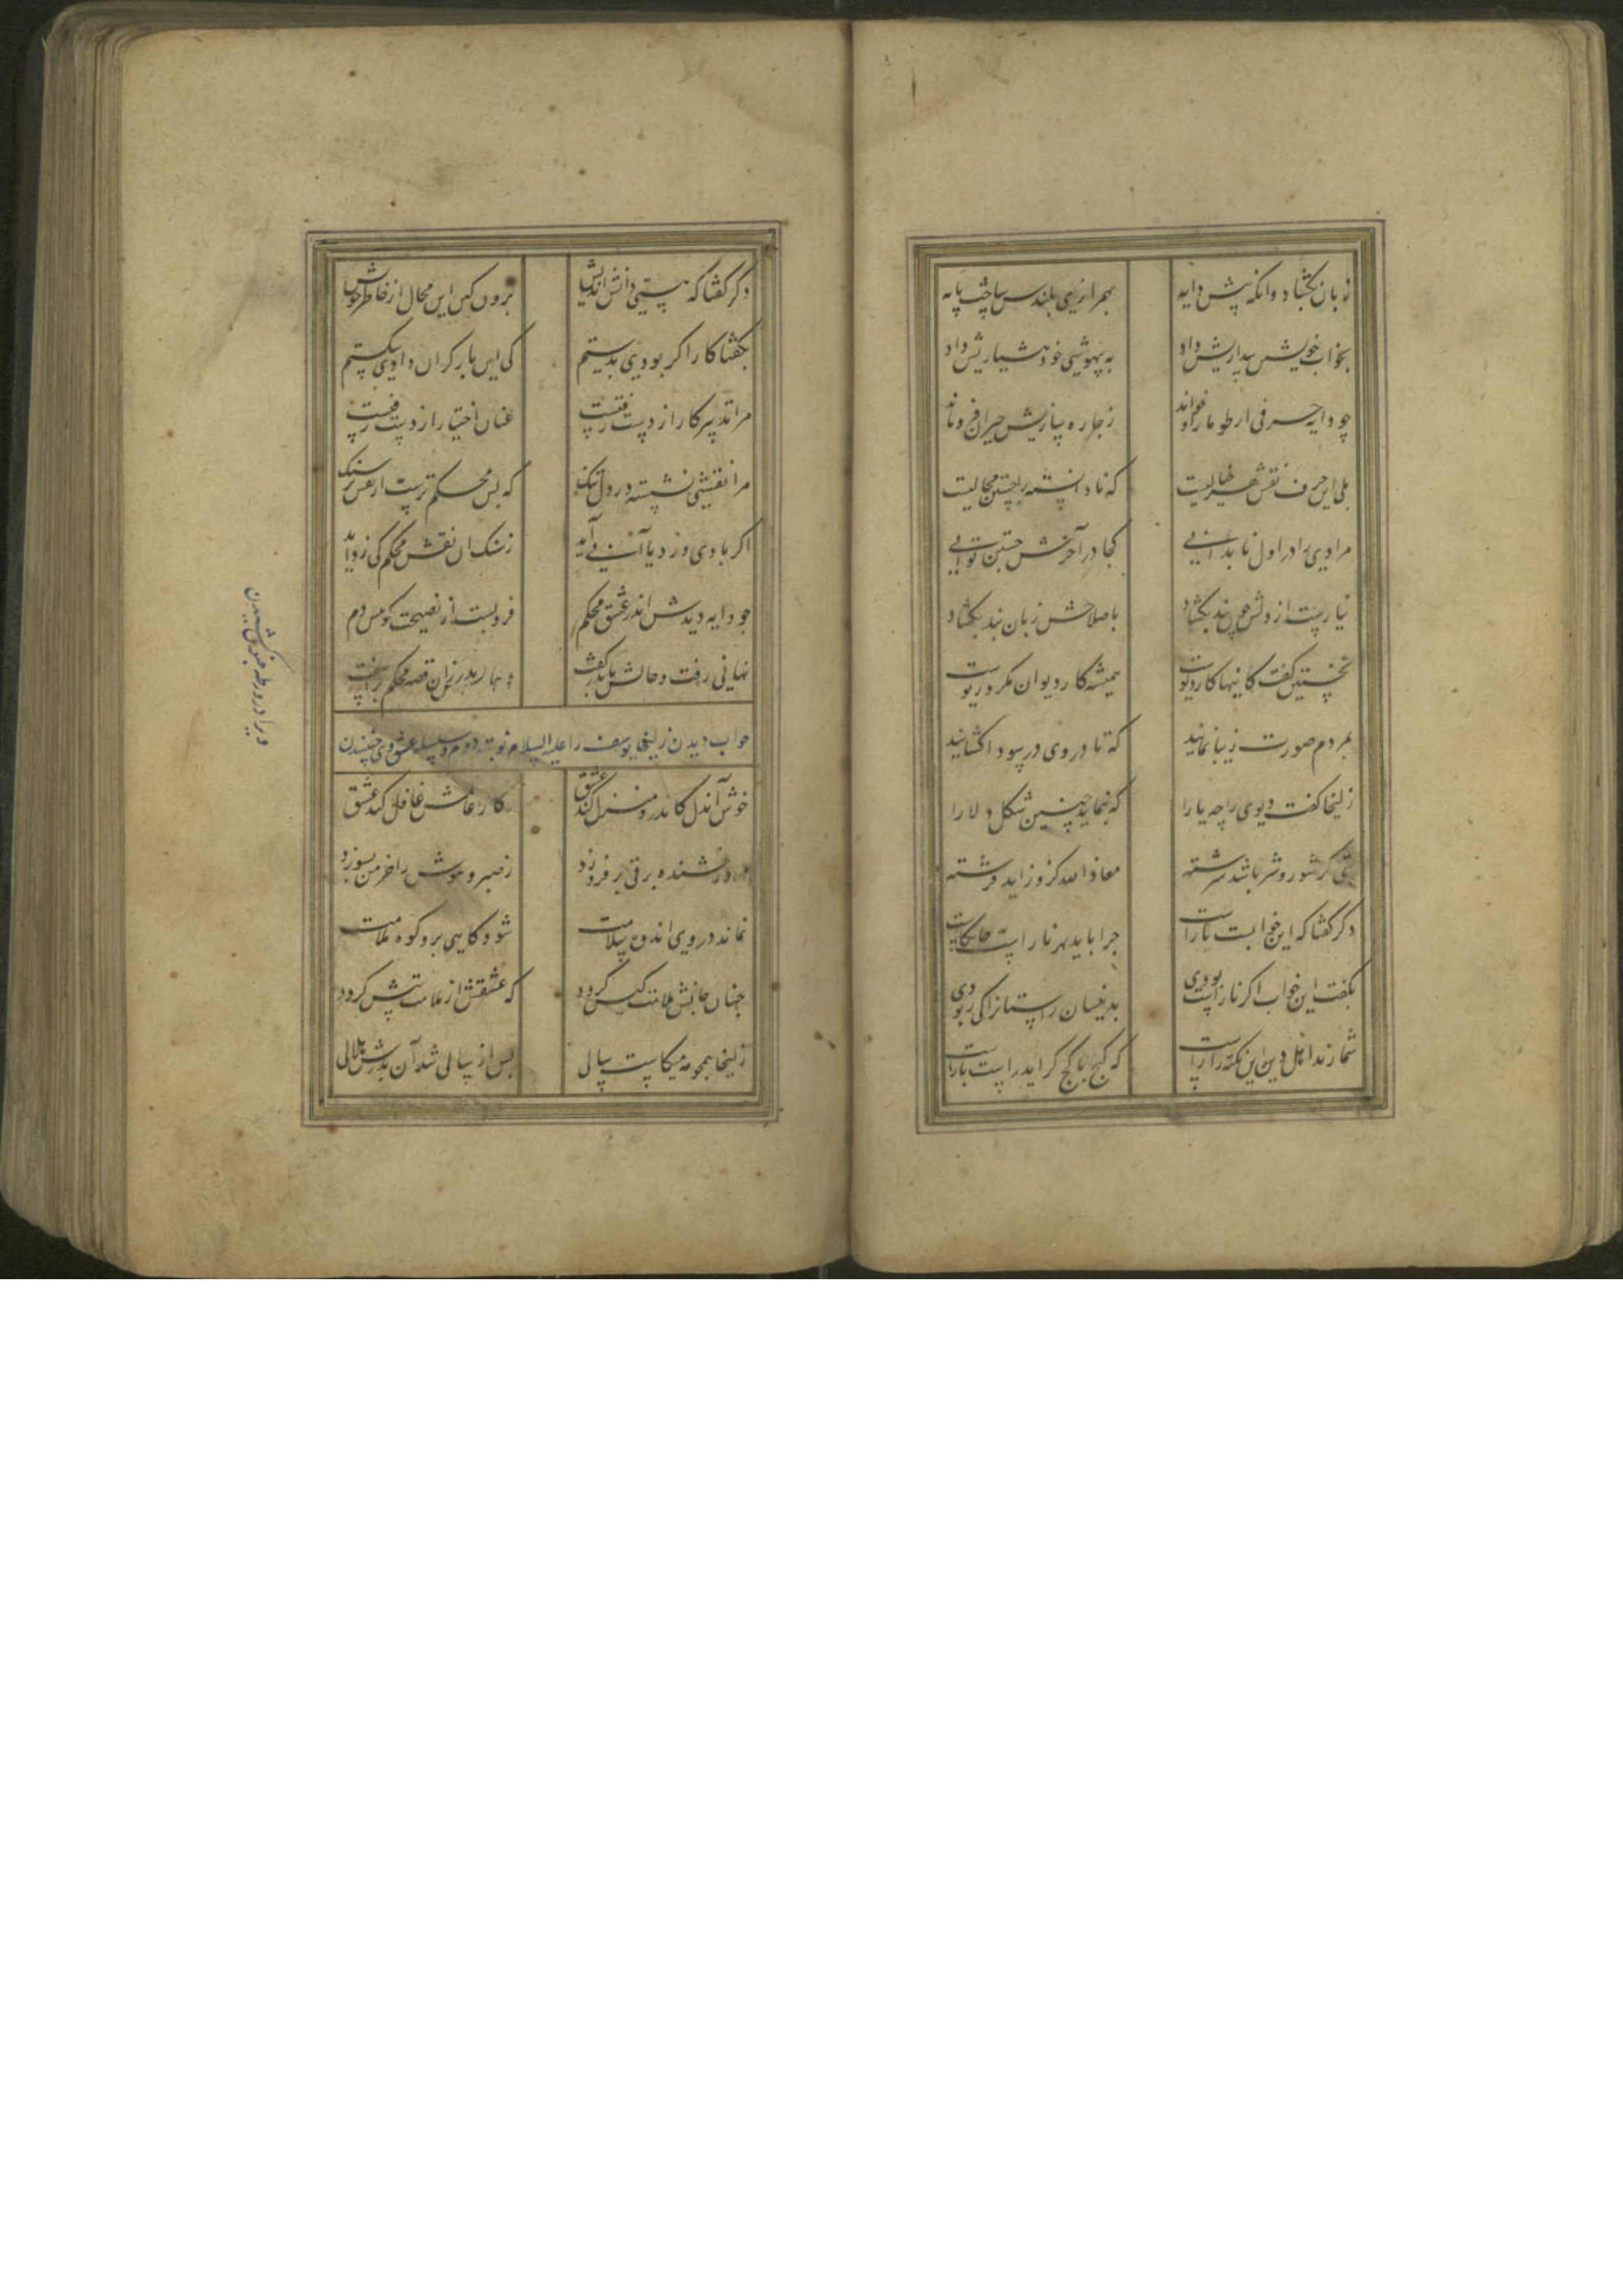 زبان بکشاد وانکه پیش دایه
بهمرازی بلندش ساخت پایه
بخواب خویش بیداریش داد
به بیهوشی خود هشیاریش داد
چو دایه حرفی از طومار او خواند
ز چاره سازیش حیران فرو ماند
بلی این حرف نقش هر خیالیست
که نادانسته را جستن محالیست
مرادی را در اول تا ندانی
کجا در آخرش جستن توانی
نیارست از دلش چون بند بکشاد
باصلاحش زبان پند بکشاد
نخستین کفت کاینها کار دیوست
همیشه کار دیوان مکر و ریوست
بمردم صورت زیبا نمایند
که تا در وی در سودا کشایند
زلیخا کفت دیوی را چه یارا
که بنماید چنین شکل دلارا
تنی کز شور و شر باشد سرشته
معاذ الله کزو زاید فرشته
دکر کفتا که این خوابست ناراست
چرا باید بهر ناراست
بکفت این خواب اکر ناراست بودی
بدینسان راستانرا کی ربودی
شمارند اهل دین این نکته را راست
که کج با کج کراید راست با راست
دکر کفتا که هستی دانش اندیش
برون کن این محال از خاطر خویش
بکفتا کار اکر بودی بدستم
کی این بار کران دادی شکستم
مرا تدبیر کار از دست رفتست
عنان اختیار از دست رفتست
مرا نقشی نشسته در دل تنک
که بس محکم ترست از نقش بر سنک
اکر بادی وزد یا آب آید
ز سنک ان نقش محکم کی زداید
چو دایه دیدش اندر عشق محکم
فرو بست از نصیحت کوییش دم
نهانی رفت و حالش با پدر کفت
پدر زان قصه محکم بر آشفت
خواب دیدن زلیخا یوسف را علیه السلام نوبت دوم و سلسله عشق وی جنبیدن
ویرا در ورطه جنون کشیدن
خوش آندل کاندرو منزل کند عشق
ز کار عالمش غافل کند عشق
درو رخشنده برقی بر فروزد
ز صبر و هوش را خرمن بسوزد
نماند در وی اندوه سلامت
شود کاهی برو کوه ملامت
چنان جانش ملامت کیش کردد
که عشقش از ملامت بیش کردد
زلیخا همچو مه میکاست سالی
پس از سالی شد آن بدرش هلالی